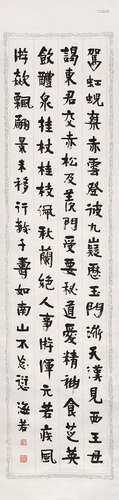 駕虹蜺乘赤雲登彼九嶷歷玉門濟天漢見西王母
謁東君交赤松及羨門受要秘道愛精神食芝英
飲醴泉柱杖桂枝佩秋蘭絕人事游渾元若疾風
游歘飄翩景未移行數千壽如南山不忘愆